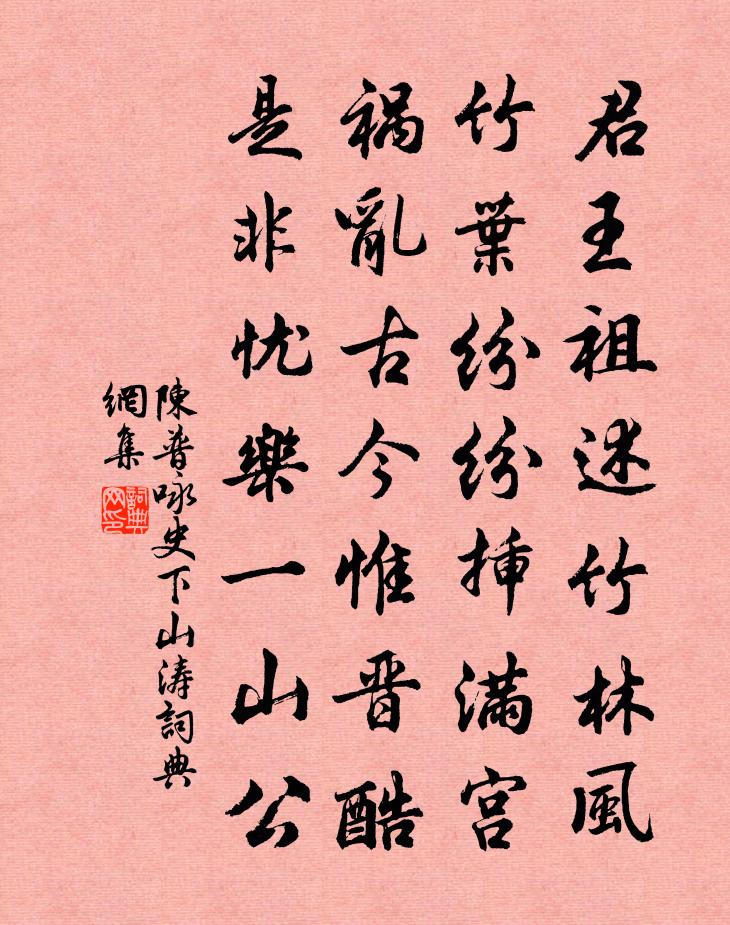 君王祖述竹林風
竹葉紛紛揷滿宮
禍亂古今惟晋酷
是非忧樂一山公
陳普咏史下山濤詞典
網集
詞典
网印